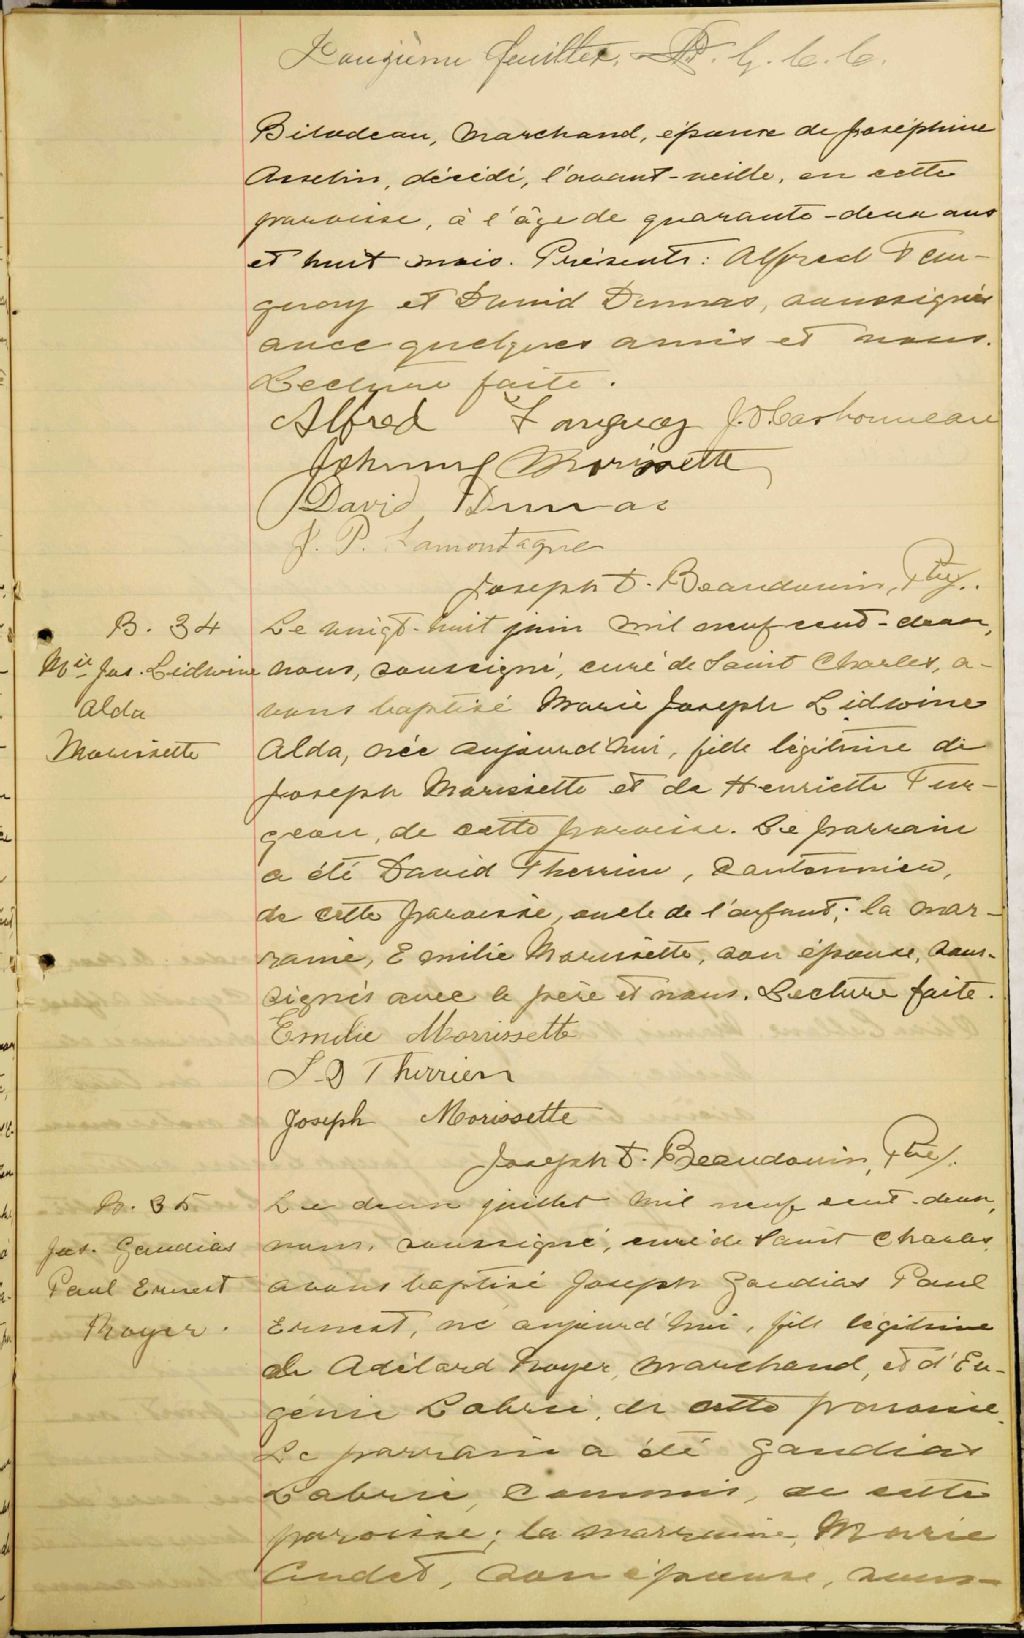 Douzième feuillet. G. C. C.
Bilodeau, marchand, époux de Joséphine
Asselin, décédé, l'avant-veille, en cette
paroisse, à l'âge de quarante-deux ans
et huit mois. Présents: Alfred Tan-
guay et David Dumas, soussignés
avec quelques amis et nous.
Lecture faite.
Alfred Tanguay J. O. Carbonneau
Johnny Morissette
David Dumas
J. P. Lamontagne
Joseph D. Beaudouin, Ptre.
B. 34
Mie Jos. Lidwine
Alda
Morissette
Le vingt-huit juin mil neuf cent-deux,
nous, soussigné, curé de Saint Charles, a-
vons baptisé Marie Joseph Lidwine
Alda, née aujourd'hui, fille légitime de
Joseph Morissette et de Henriette Tur-
geon, de cette paroisse. Le parrain
a été David Therrien, Cantonnier,
de cette paroisse, oncle de l'enfant; la mar-
raine, Emilie Morissette, son épouse, sous-
signés avec le père et nous. Lecture faite.
Emilie Morrissette
J-D Therrien
Joseph Morissette
Joseph D. Beaudouin, Ptre.
B. 35
Jos. Gaudias
Paul Ernest
Royer.
Le deux juillet mil neuf cent-deux,
nous, soussigné, curé de Saint Charles,
avons baptisé Joseph Gaudias Paul
Ernest, né aujourd'hui, fils légitime
de Adélard Royer, marchand, et d'Eu-
génie Labrie, de cette paroisse.
Le parrain a été Gaudias
Labrie, Commis, de cette
paroisse; la marraine, Marie
Audet, son épouse, sous-